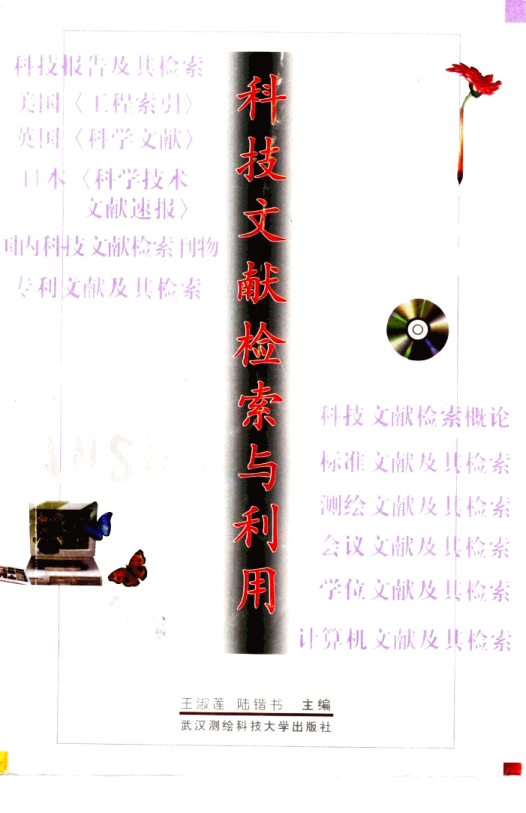 科技文献检索与利用
科技报告及其检索
美国〈工程索引〉
英国〈科学文献〉
日本〈科学技术
文献速报〉
国内科技文献检索刊物
专利文献及其检索
科技文献检索概论
标准文献及其检索
测绘文献及其检索
会议文献及其检索
学位文献及其检索
计算机文献及其检索
王淑莲 陆锴书 主编
武汉测绘科技大学出版社